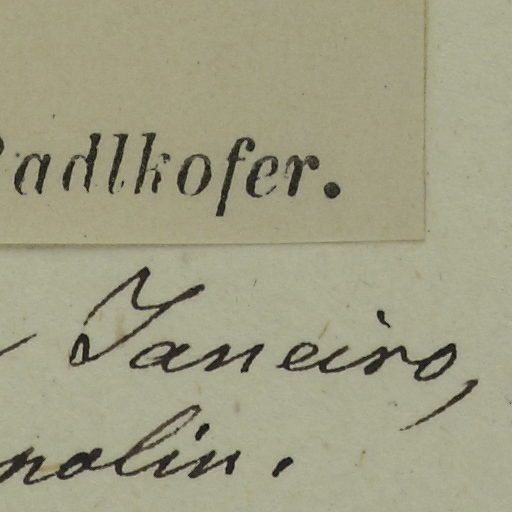 Radlkofer.
Janeiro,
nolin.